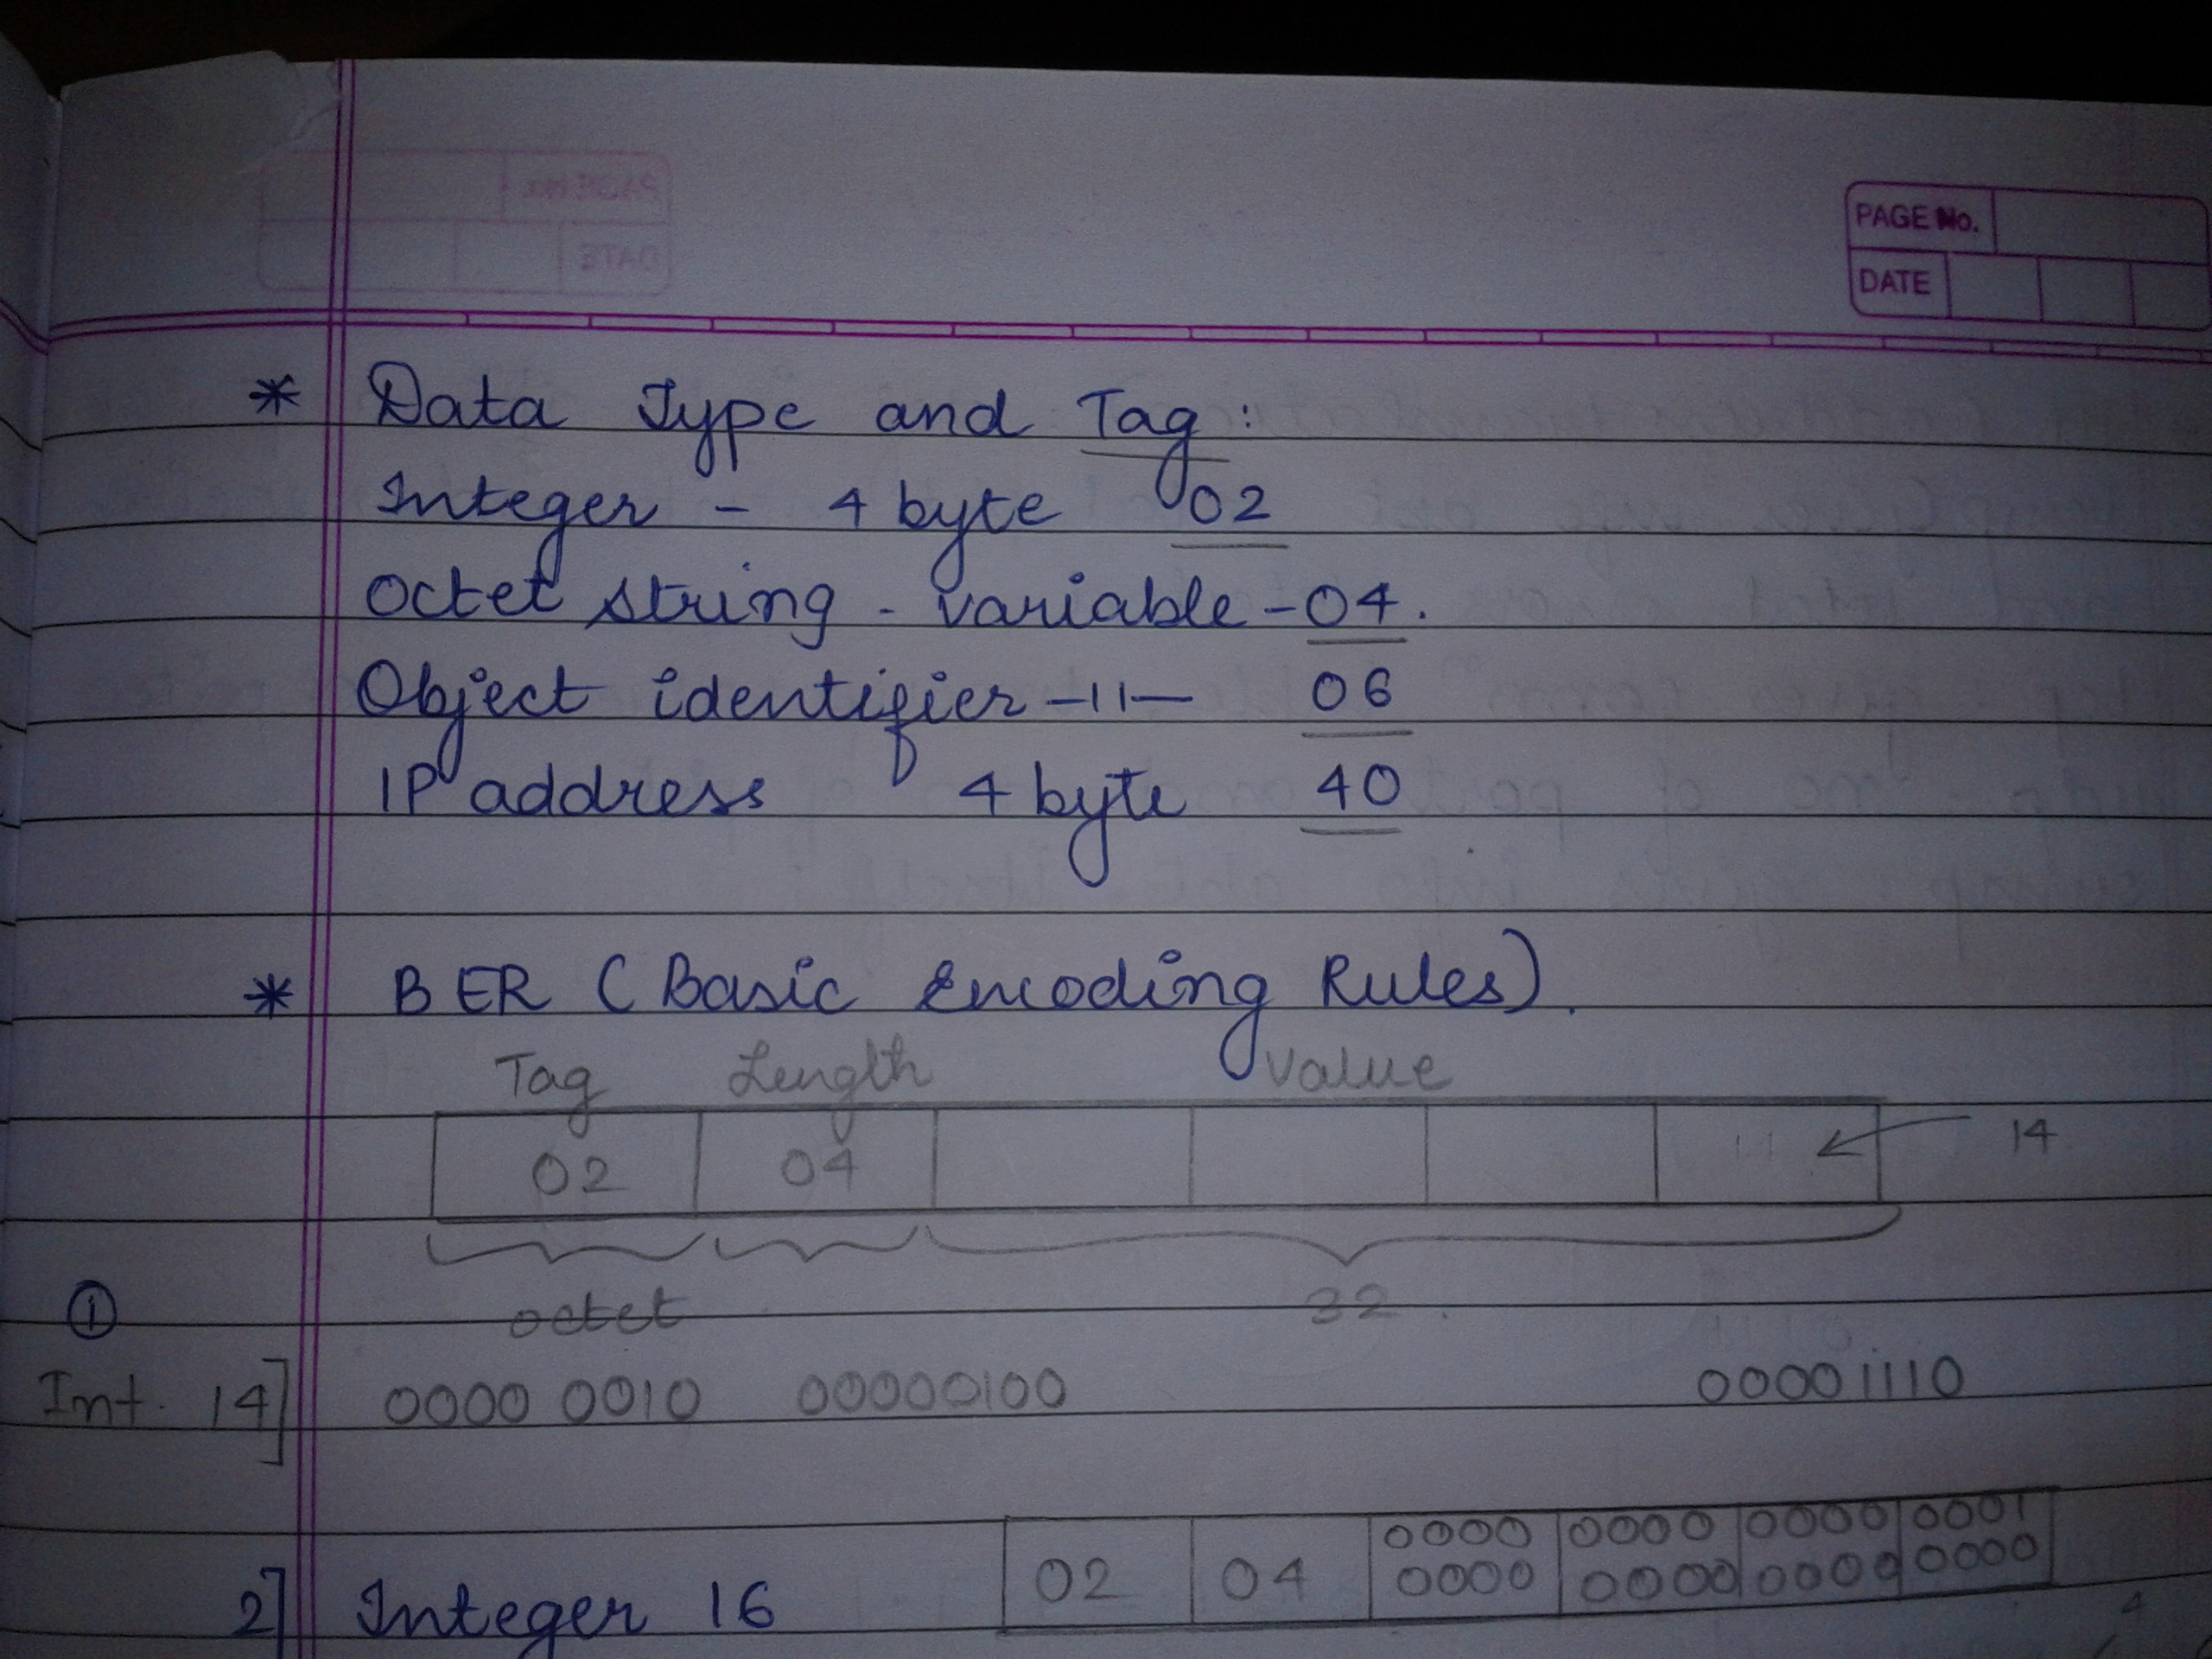 PAGE No.
DATE
* Data Type and Tag :
Integer - 4 byte 02
Octet string - variable - 04.
Object identifier -11- 06
IP address 4 byte 40
* BER (Basic Encoding Rules).
Tag Length Value
02 04 14
octet 32.
①
Int. 14] 0000 0010 00000100 00001110
2] Integer 16 02 04 0000 0000 0000 0001
0000 0000 0000 0000